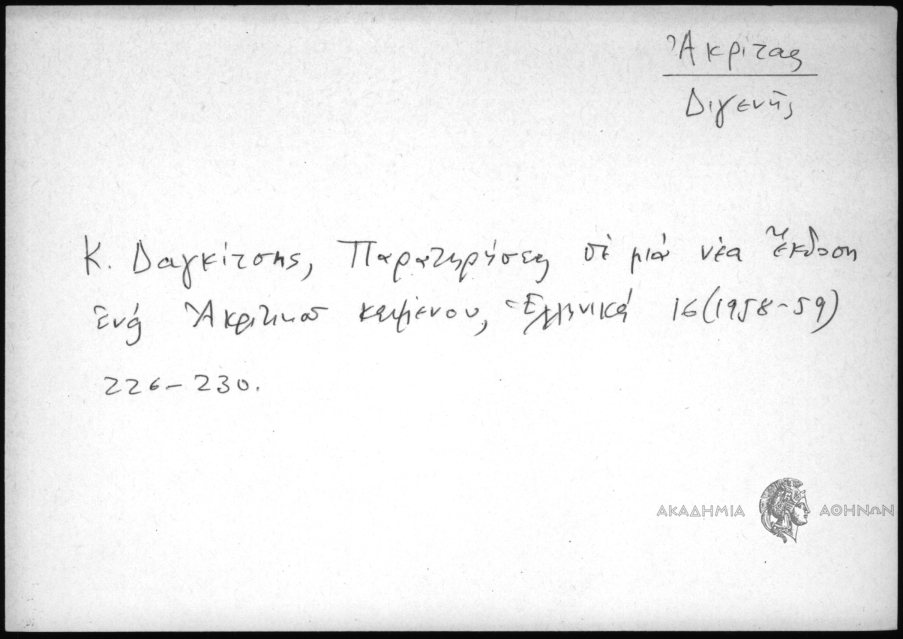 Ἀκρίτας
Διγενής
Κ. Δαγκίτσης, Παρατηρήσεις σὲ μιὰ νέα ἔκδοση
ἑνός Ἀκριτικοῦ κειμένου, Ἑλληνικά 16 (1958-59)
226-230.
ΑΚΑΔΗΜΙΑ ΑΘΗΝΩΝ